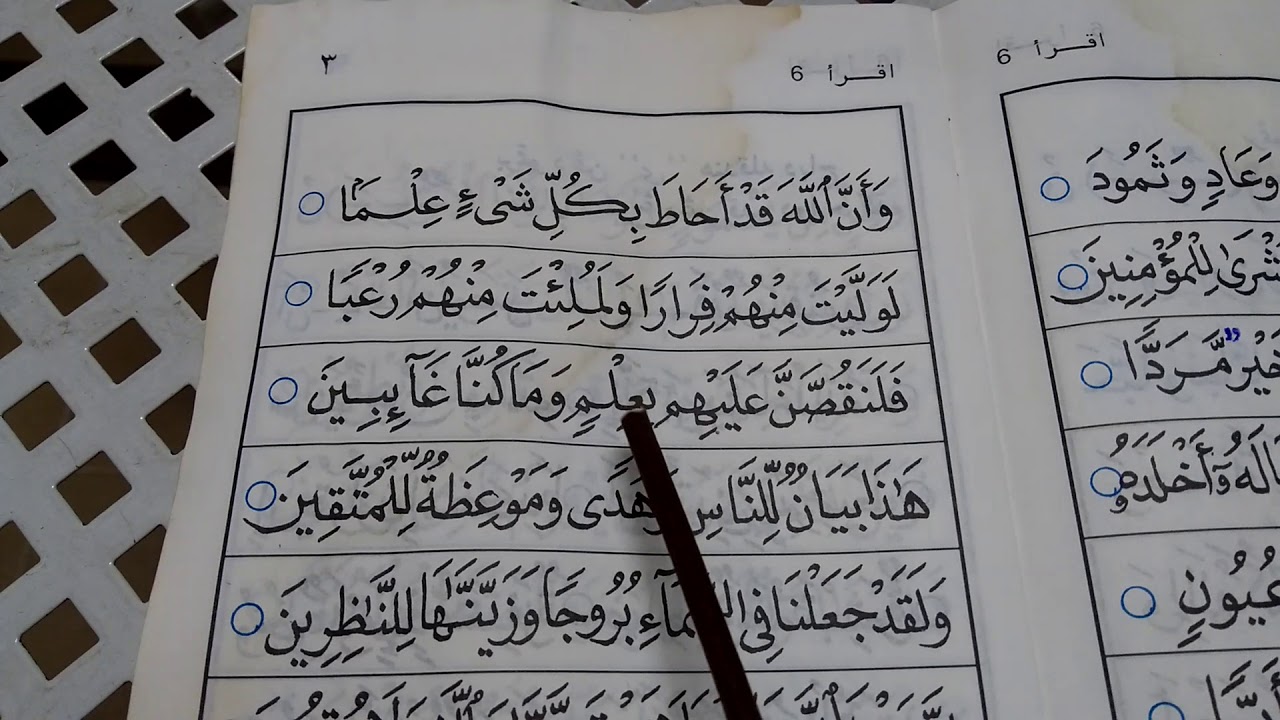 ٣
اقرأ 6
وَأَنَّ ٱللَّهَ قَدْ أَحَاطَ بِكُلِّ شَىْءٍ عِلْمًۢا
لَوَلَّيْتَ مِنْهُمْ فِرَارًا وَلَمُلِئْتَ مِنْهُمْ رُعْبًا
فَلَنَقُصَّنَّ عَلَيْهِم بِعِلْمٍ وَمَا كُنَّا غَآئِبِينَ
هَٰذَا بَيَانٌ لِّلنَّاسِ وَهُدًى وَمَوْعِظَةٌ لِّلْمُتَّقِينَ
وَلَقَدْ جَعَلْنَا فِى السَّمَآءِ بُرُوجًا وَزَيَّنَّٰهَا لِلنَّٰظِرِينَ
اقرأ 6
وَعَادٍ وَثَمُودَ
لِلْمُؤْمِنِينَ
خَيْرٌ مَّرَدًّا
أَخْلَدَهُۥ
عُيُونٍ